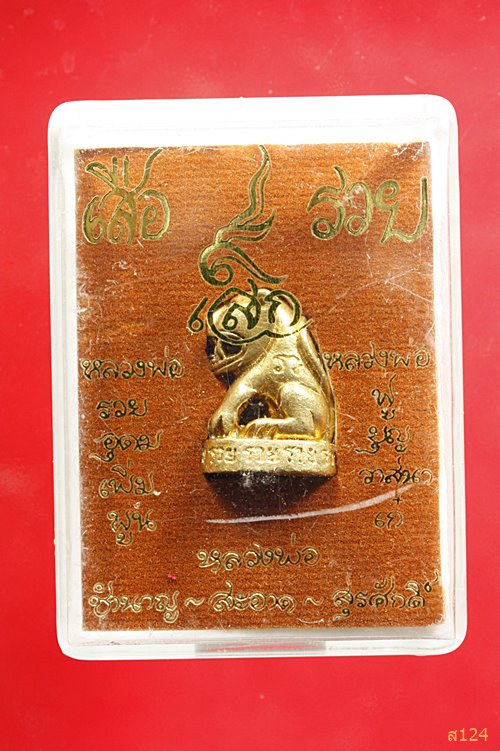 เสือ ๙ รวย
เสก
หลวงพ่อ
รวย
อุดม
เพิ่ม
พูน
รวย รวย รวย
หลวงพ่อ
ฟู
บุญ
วาสนา
เก๋
หลวงพ่อ
ชำนาญ ~ สะอาด ~ สุรศักดิ์
ส124